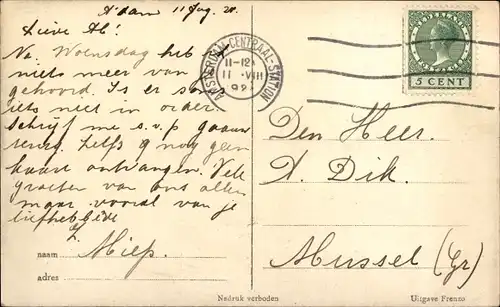 A'dam 11 Aug. 28.
Lieve Ab!
Na Woensdag heb ik
niets meer van je
gehoord. Is er soms
iets niet in orde
Schrijf me s.v.p gauw
terug. Heb nog geen
kaart ontvangen. Vele
groeten van ons allen
maar vooral van je
liefheb
naam Miep.
adres
AMSTERDAM CENTRAAL-STATION
11-12
11 VIII
192
NEDERLAND
5 CENT
Den Heer
A. Dik.
Mussel (Gr)
Nadruk verboden
Uitgave Frenzo